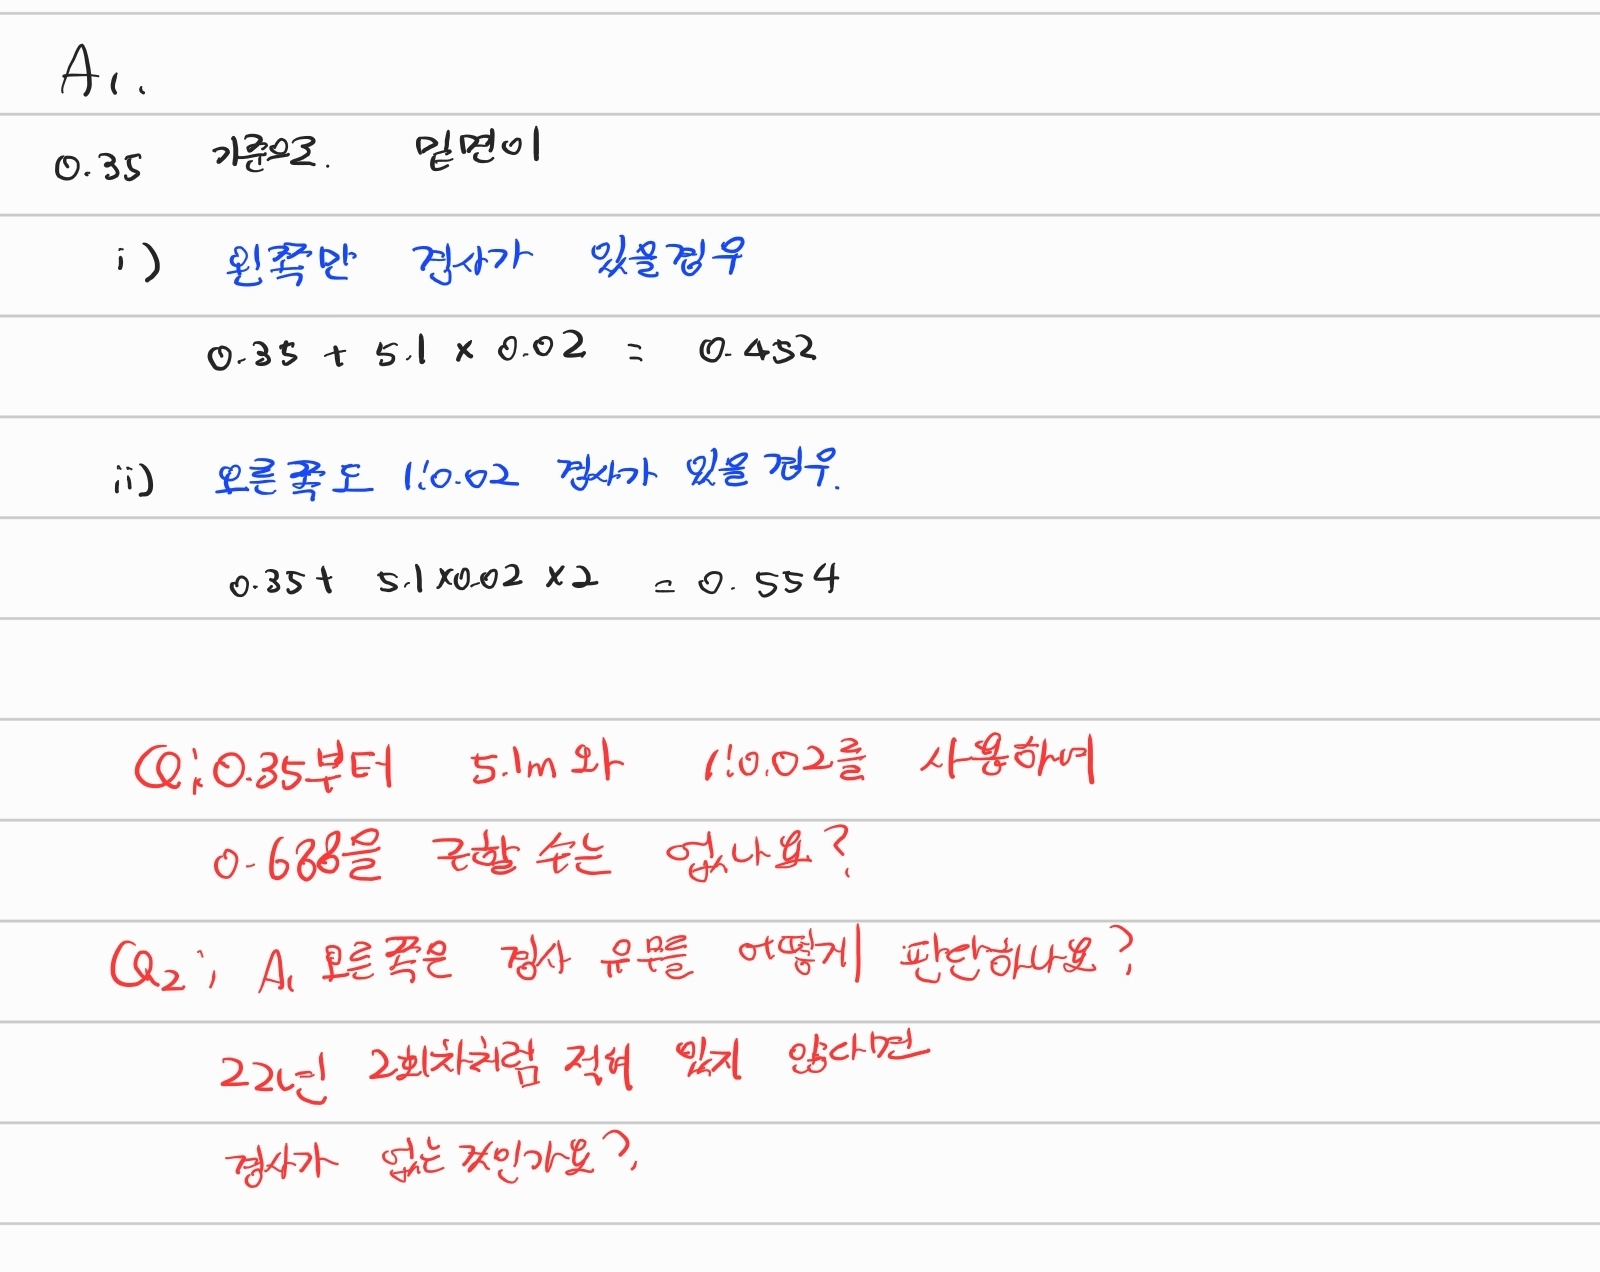 A1.
0.35 기준으로. 밑면이
i) 왼쪽만 경사가 있을경우
0.35 + 5.1 × 0.02 = 0.452
ii) 오른쪽도 1:0.02 경사가 있을 경우.
0.35+ 5.1×0.02 ×2 = 0.554
Q; 0.35부터 5.1m와 1:0.02를 사용하여
0.688을 구할 수는 없나요?
Q2; A1 오른쪽은 경사 유무를 어떻게 판단하나요?
22년 2회차처럼 적혀 있지 않다면
경사가 없는 것인가요?